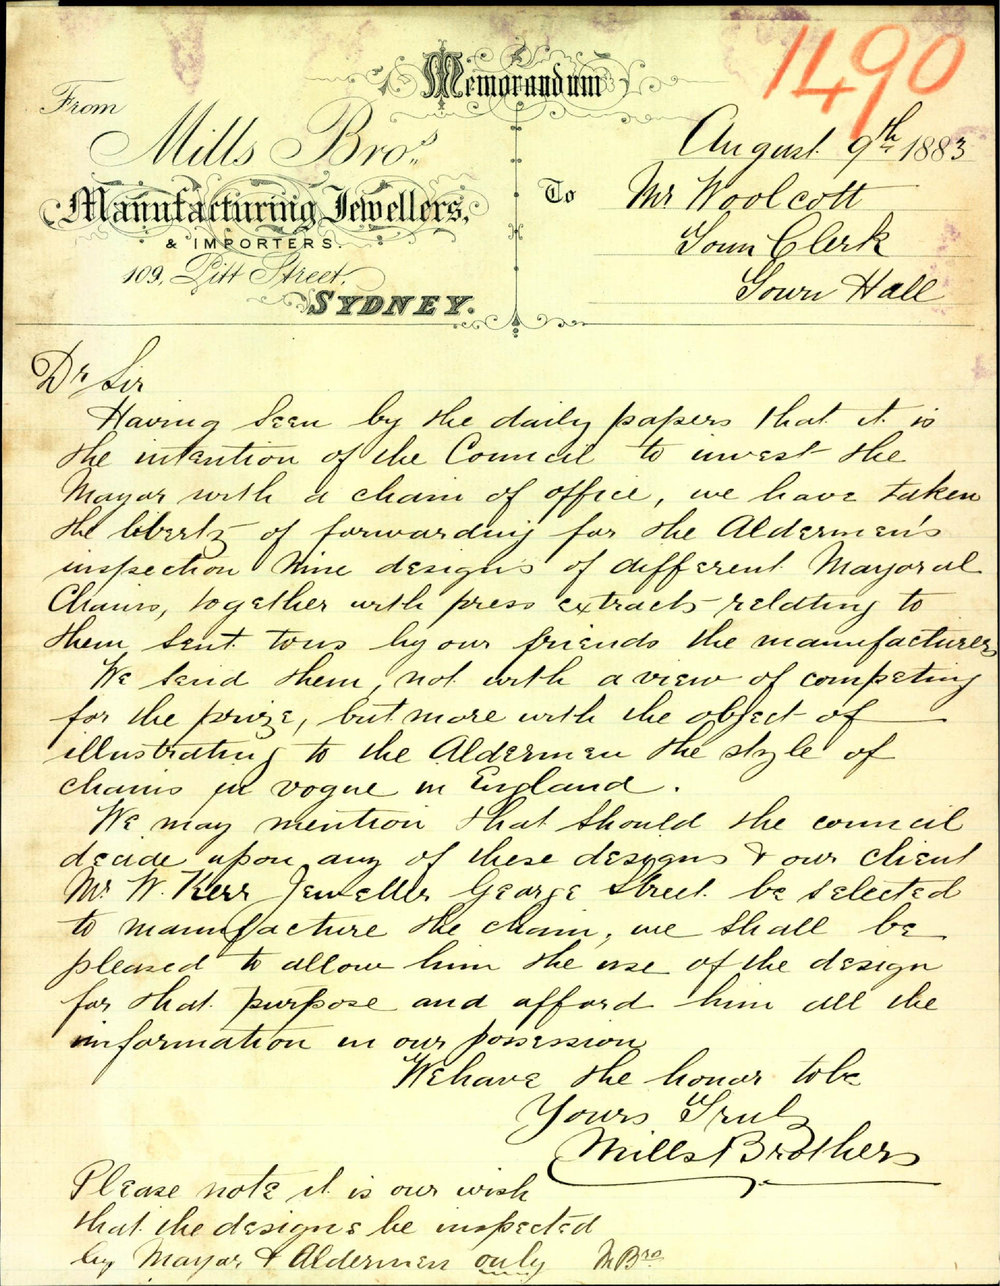 1490
Memorandum
From
Mills Bros.
Manufacturing Jewellers,
& IMPORTERS.
109, Pitt Street,
SYDNEY.
August 9th 1883
To
Mr Woolcott
Town Clerk
Town Hall
Dr Sir
Having seen by the daily papers that it is
the intention of the Council to invest the
Mayor with a chain of office, we have taken
the liberty of forwarding for the Aldermen's
inspection Nine designs of different Mayoral
Chains, together with press extracts relating to
them sent to us by our friends the manufacturers
We send them, not with a view of competing
for the prize, but more with the object of
illustrating to the Aldermen the style of
chains in vogue in England.
We may mention that should the council
decide upon any of these designs & our client
Mr W. Kerr Jeweller George Street be selected
to manufacture the chain, we shall be
pleased to allow him the use of the design
for that purpose and afford him all the
information in our possession
We have the honor to be
Yours Truly
Mills Brothers
Please note it is our wish
that the designs be inspected
by Mayor & Aldermen only M Bros